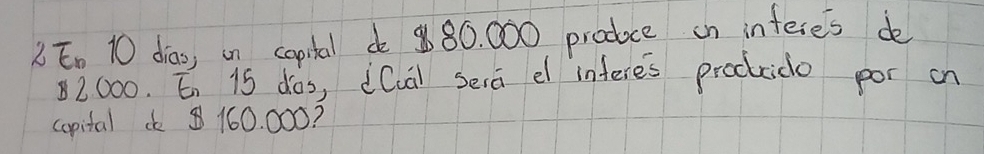 2 En 10 dias, un capital de $80.000 produce un interés de
$2.000. En 15 dias, ¿Cuál será el interés producido por un
capital de $160.000?